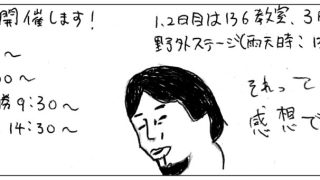 開催します!
~
00~
勝 9:30~
14:30~
1.2日目は136教室、3
野外ステージ(雨天時:
それって
感想で